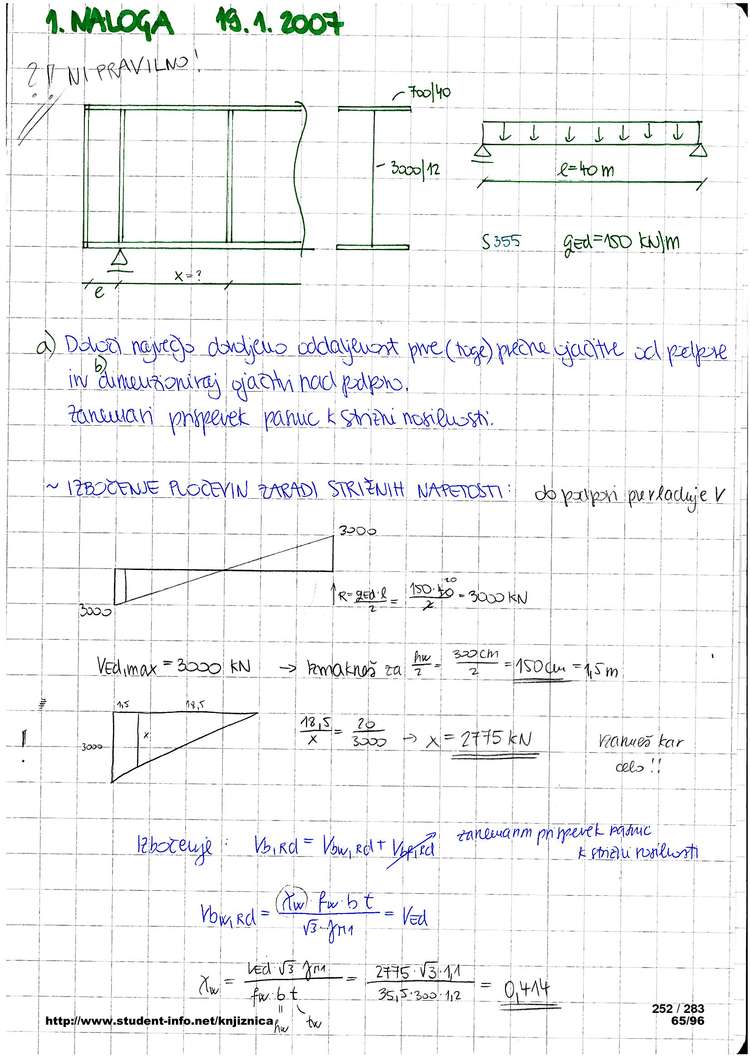 1. NALOGA 19.1.2007
?!! NI PRAVILNO!
700/40
3000/12
l=40m
x=?
e
S355 qEd=150 kN/m
a) Določi največjo dovoljeno oddaljenost prve (toge) prečne ojačitve od podpore
in b) dimenzioniraj ojačitvi nad podporo.
Zanemari prispevek pasnic k strižni nosilnosti.
~ IZBOČENJE PLOČEVIN ZARADI STRIŽNIH NAPETOSTI: ob podpori prevladuje V
3000
R = qEd·l/2 = 150·40/2 = 3000 kN
3000
VEd,max = 3000 kN → izmakneš za hw/2 = 300cm/2 = 150cm = 1,5m
1,5 18,5
3000 x
!
18,5/x = 20/3000 → x = 2775 kN
vzameš kar
celo!!
Izbočenje: Vb,Rd = Vbw,Rd + Vbf,Rd
zanemarim prispevek pasnic
k strižni nosilnosti
Vbw,Rd = χw·fw·b·t/√3·γM1 = VEd
χw = VEd·√3·γM1/fw·b·t = 2775·√3·1,1/35,5·300·1,2 = 0,414
hw tw
252 / 283
http://www.student-info.net/knjiznica 65/96